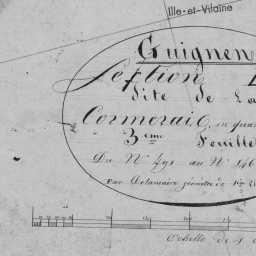 Ille-et-Vilaine
Guignen
Section
dite de La
Cormerais, en quat
3eme feuille
Du N° 491 au N° 146
Par Delamaire géomètre de 1ère
Echelle de 1